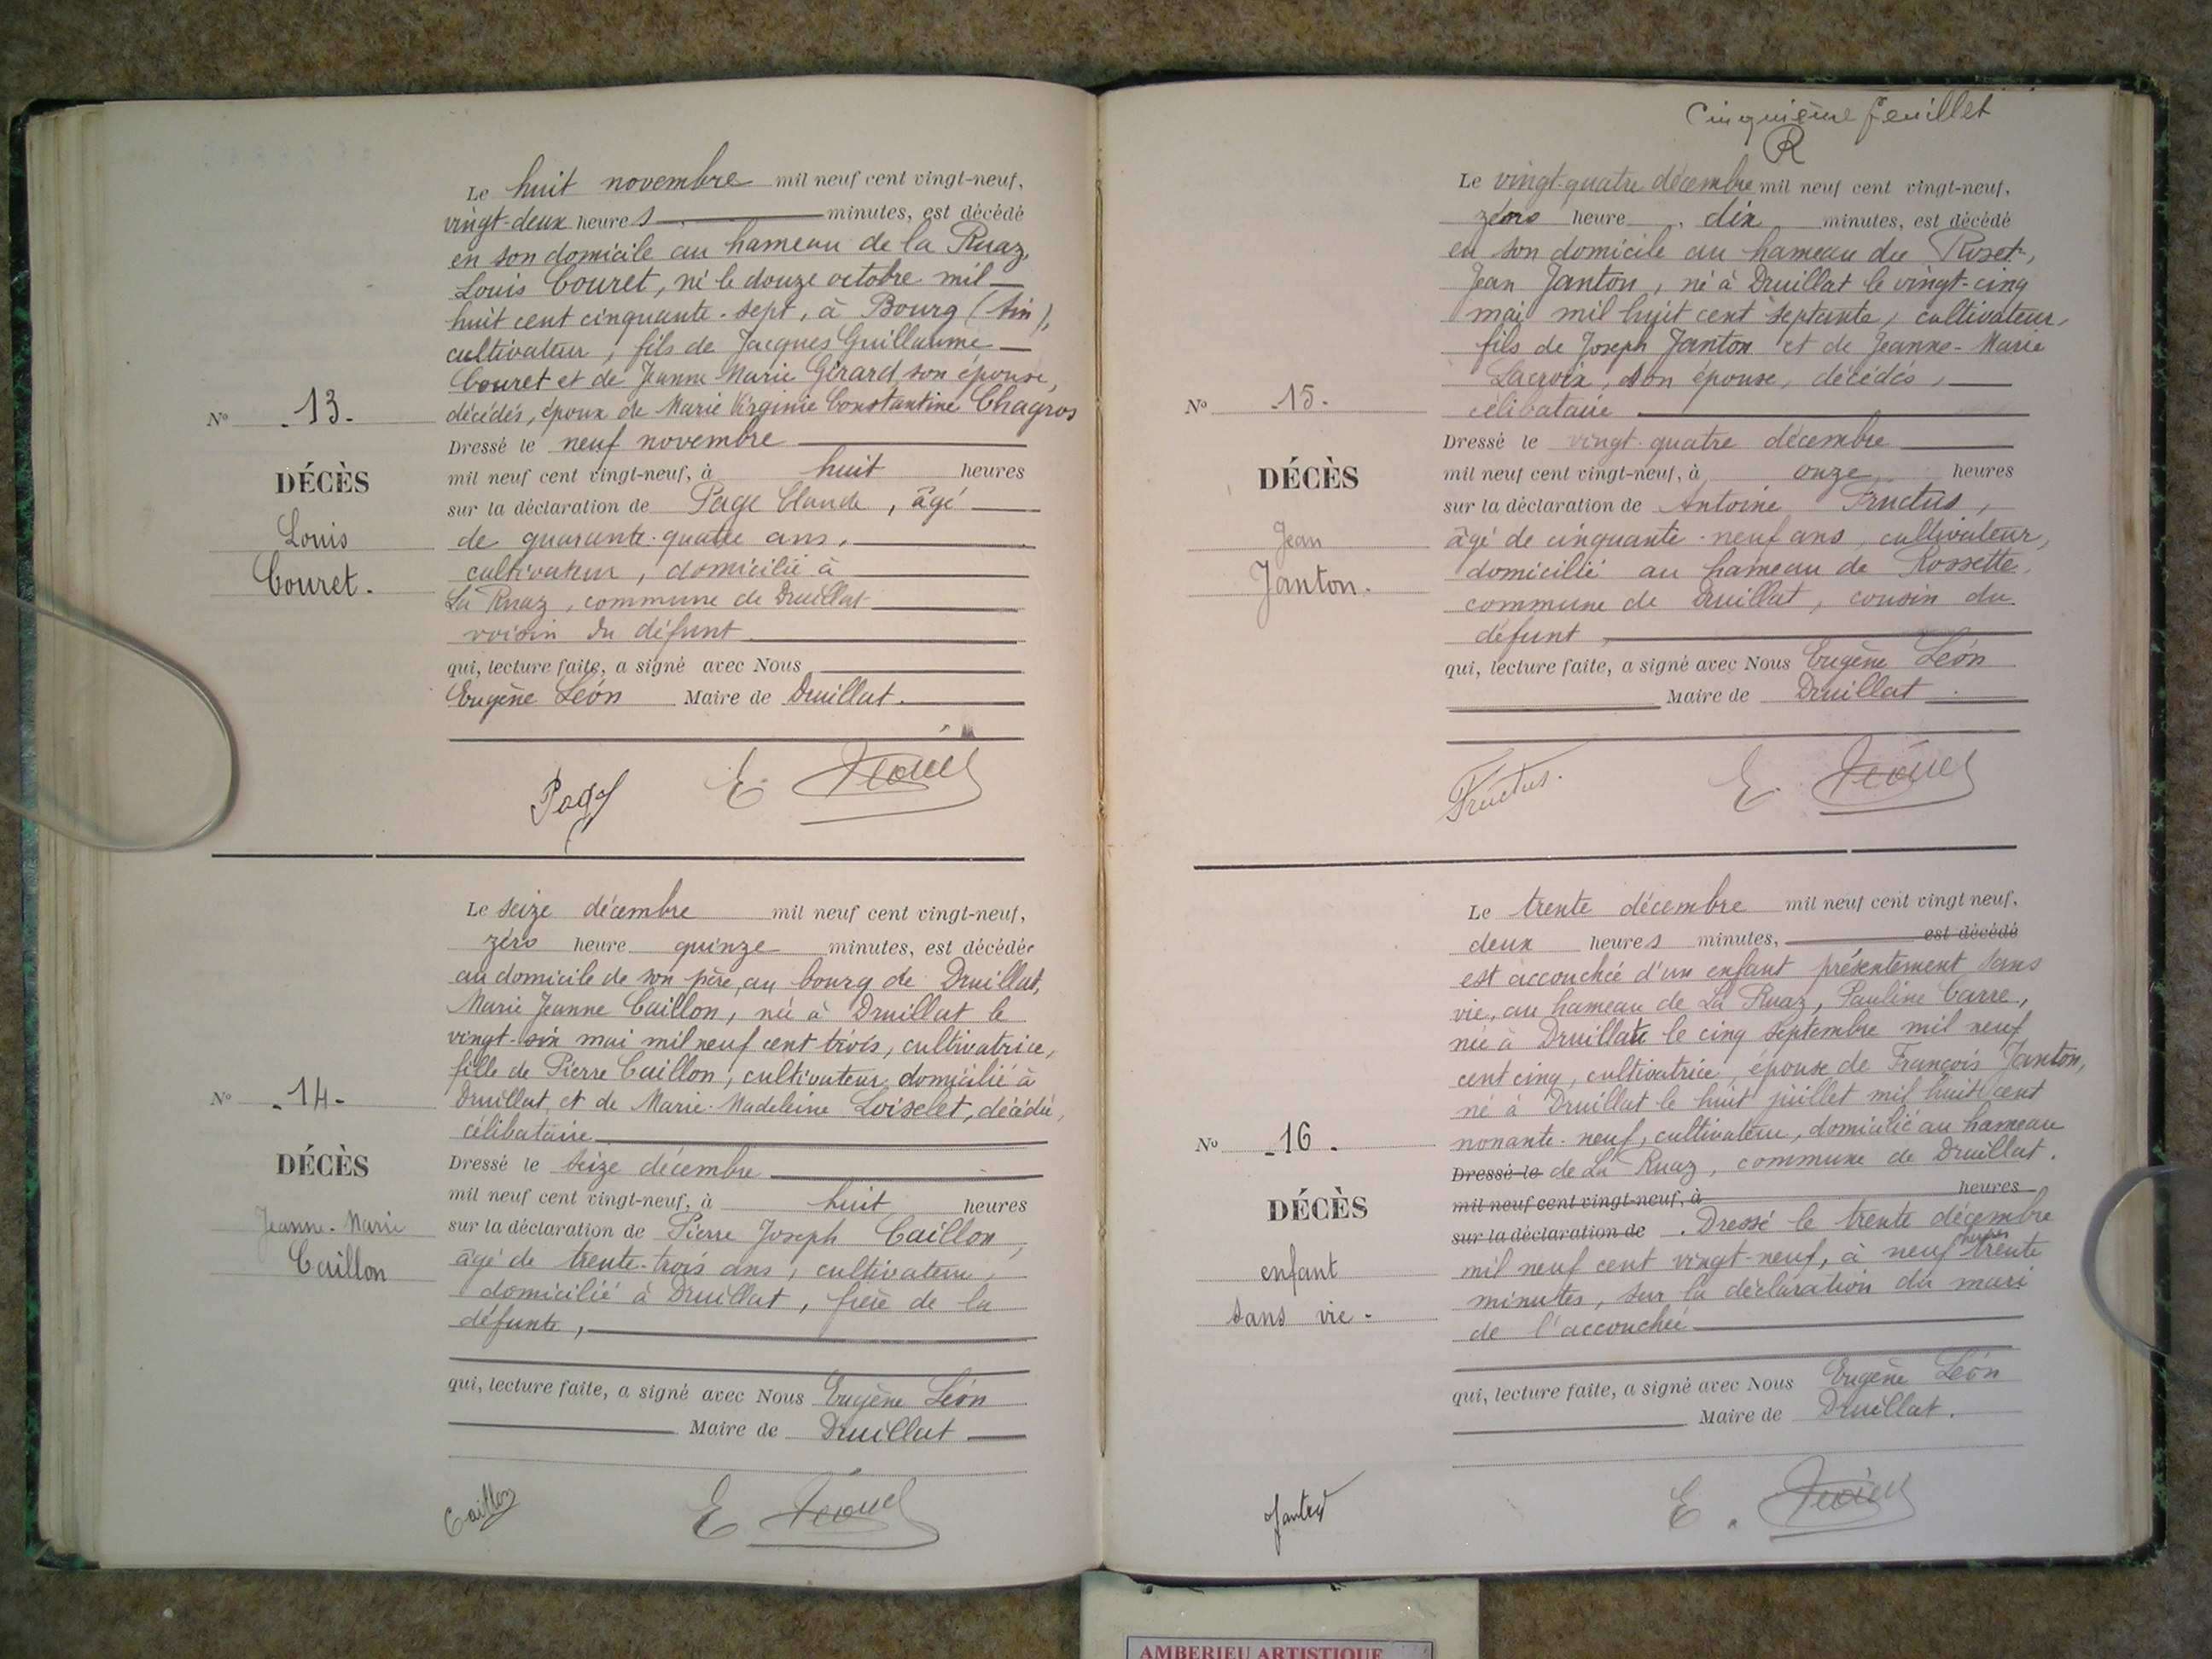 Le huit novembre mil neuf cent vingt-neuf,
vingt-deux heures minutes, est décédé
en son domicile au hameau de la Ruaz,
Louis Couret, né le douze octobre mil
huit cent cinquante-sept, à Bourg (Ain),
cultivateur, fils de Jacques Guillaume
Couret et de Jeanne Marie Girard son épouse,
décédés, époux de Marie Virginie Constantine Chagros
No -13-
DÉCÈS
Louis
Couret.
Dressé le neuf novembre
mil neuf cent vingt-neuf, à huit heures
sur la déclaration de Page Claude, âgé
de quarante-quatre ans,
cultivateur, domicilié à
La Ruaz, commune de Druillat
voisin du défunt
qui, lecture faite, a signé avec Nous
Eugène Léon Maire de Druillat.
Page E. Léon
Le seize décembre mil neuf cent vingt-neuf,
zéro heure quinze minutes, est décédée
au domicile de son père, au bourg de Druillat,
Marie Jeanne Caillon, née à Druillat le
vingt-six mai mil neuf cent trois, cultivatrice,
fille de Pierre Caillon, cultivateur domicilié à
Druillat et de Marie-Madeleine Loiselet, décédée,
célibataire
No -14-
DÉCÈS
Jeanne-Marie
Caillon
Dressé le seize décembre
mil neuf cent vingt-neuf, à huit heures
sur la déclaration de Pierre Joseph Caillon,
âgé de trente-trois ans, cultivateur,
domicilié à Druillat, frère de la
défunte,
qui, lecture faite, a signé avec Nous Eugène Léon
Maire de Druillat
Caillon E Léon
Cinquième feuillet
R
Le vingt-quatre décembre mil neuf cent vingt-neuf,
zéoro heure, dix minutes, est décédé
en son domicile au hameau du Roset,
Jean Janton, né à Druillat le vingt-cinq
mai mil huit cent septante, cultivateur,
fils de Joseph Janton et de Jeanne-Marie
Lacroix, son épouse, décédés,
célibataire
No -15-
DÉCÈS
Jean
Janton.
Dressé le vingt-quatre décembre
mil neuf cent vingt-neuf, à onze heures
sur la déclaration de Antoine Fructus,
âgé de cinquante-neuf ans, cultivateur,
domicilié au hameau de Rossette,
commune de Druillat, cousin du
défunt,
qui, lecture faite, a signé avec Nous Eugène Léon
Maire de Druillat.
Fructus. E. Léon
Le trente décembre mil neuf cent vingt neuf,
deux heures minutes, est décédé
est accouchée d'un enfant présentement sans
vie, au hameau de La Ruaz, Pauline Carre,
née à Druillatt le cinq septembre mil neuf
cent cinq, cultivatrice, épouse de François Janton,
né à Druillat le huit juillet mil huit cent
nonante-neuf, cultivateur, domicilié au hameau
Dressé le de La Ruaz, commune de Druillat.
No -16-
DÉCÈS
enfant
sans vie.
mil neuf cent vingt-neuf, à heures
sur la déclaration de . Dressé le trente décembre
mil neuf cent vingt-neuf, à neuf heures trente
minutes, sur la déclaration du mari
de l'accouchée
qui, lecture faite, a signé avec Nous Eugène Léon
Maire de Druillat.
Janton E. Léon
AMBERIEU ARTISTIQUE